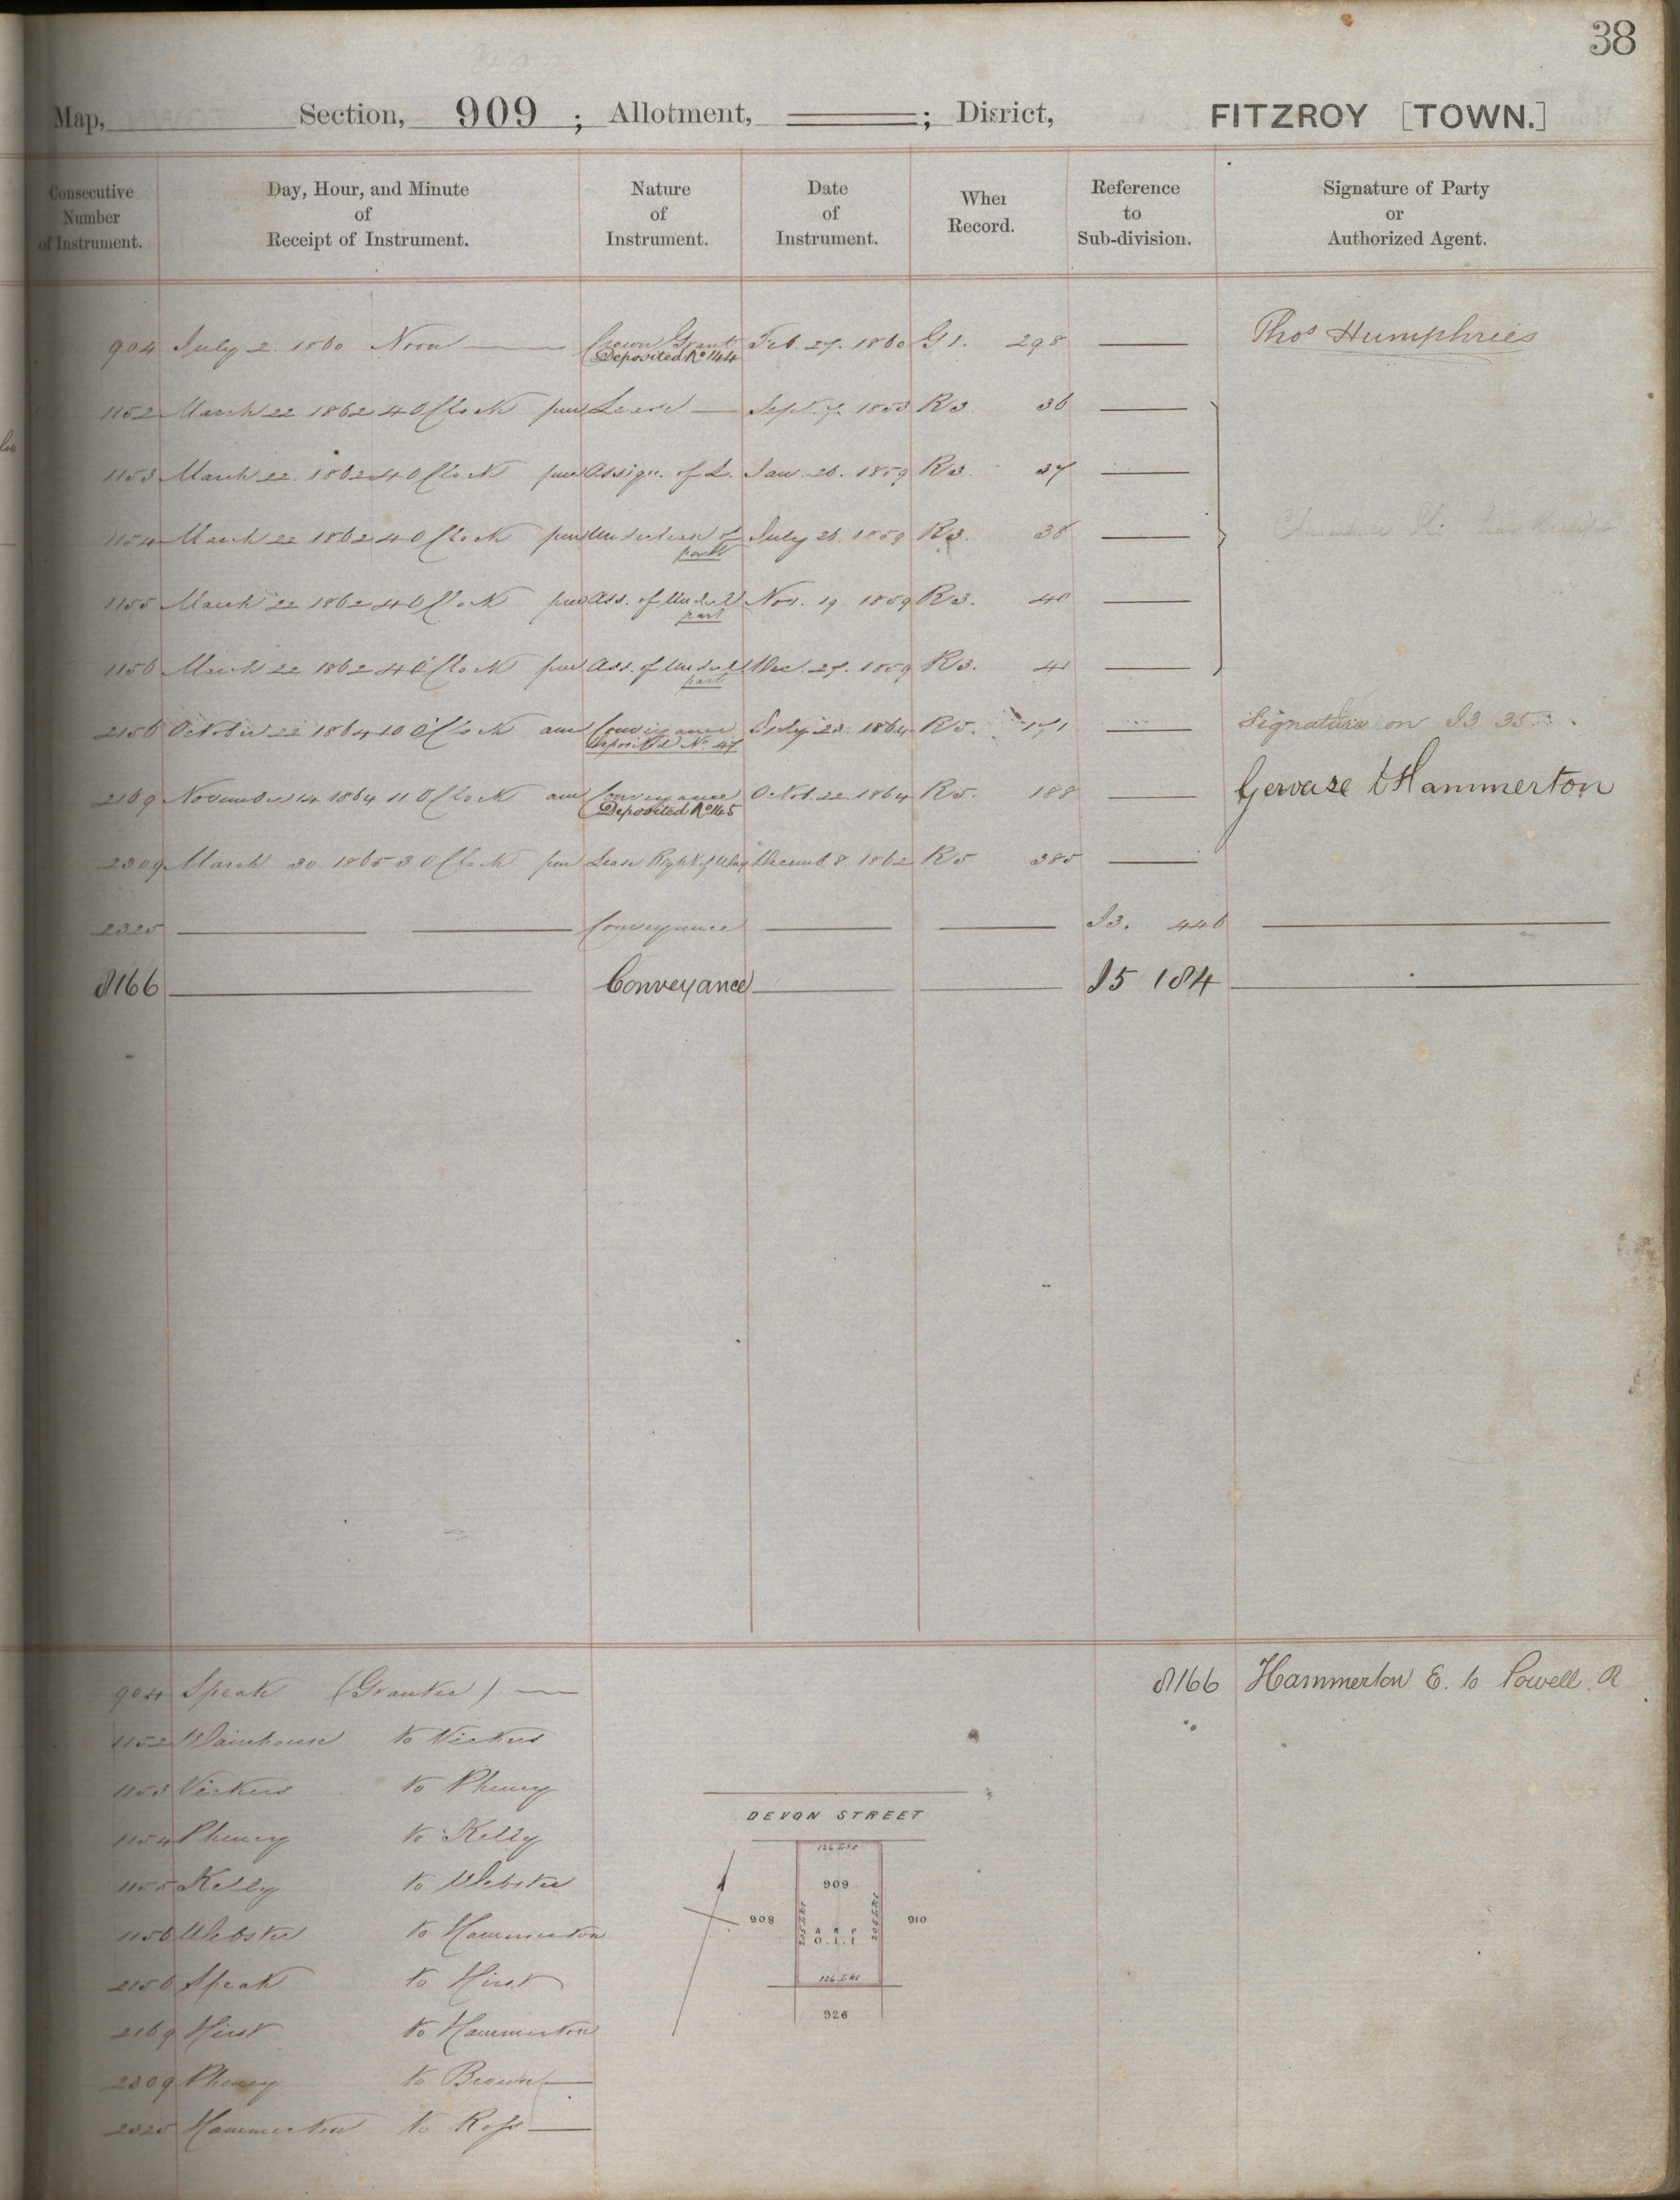 38
Map, Section, 909 ; Allotment, ; Disrict, FITZROY [TOWN.]
Consecutive Number of Instrument.
Day, Hour, and Minute of Receipt of Instrument.
Nature of Instrument.
Date of Instrument.
Wher Record.
Reference to Sub-division.
Signature of Party or Authorized Agent.
904 July 2. 1860 Noon Crown Grant Feb. 27. 1860 G 1. 298 Thos Humphries
Deposited No 144
1152 March 22 1862 4 O'Clock pm Lease Sept. 7. 1853 R3. 36
1153 March 22 1862 4 O'Clock pm Assign. of L. Jan. 26. 1859 R3. 37
1154 March 22 1862 4 O'Clock pm Underlease of July 26. 1859 R3. 38
part
1155 March 22 1862 4 O'Clock pm Ass. of Undll Nov. 19 1859 R3. 40
part
1156 March 22 1862 4 O'Clock pm Ass. of Undll Dec. 27. 1859 R3. 41
part
2156 October 22 1864 10 O'Clock am Conveyance July 23. 1864 R5. 171 Signature on I3 35
Deposited No 47
2169 November 14 1864 11 O'Clock am Conveyance Octob. 22. 1864 R5. 188 Gervase E Hammerton
Deposited No 145
2309 March 30. 1865 3 O'Clock pm Lease Right of Way Decemb. 8. 1862 R5 385
2325 Conveyance I3. 446
8166 Conveyance I5 184
904 Speak (Grantee)
8166 Hammerton E. to Powell. A
1152 Wainhouse to Vickers
1153 Vickers to Pheney
1154 Pheney to Kelly
1155 Kelly to Webster
1156 Webster to Hammerton
2156 Speak to Hirst
2169 Hirst to Hammerton
2309 Pheney to Brown
2325 Hammerton to Ross
DEVON STREET
126 Lks
909
908
205 Lks
205 Lks
910
A R P
0.1.1
126 Lks
926